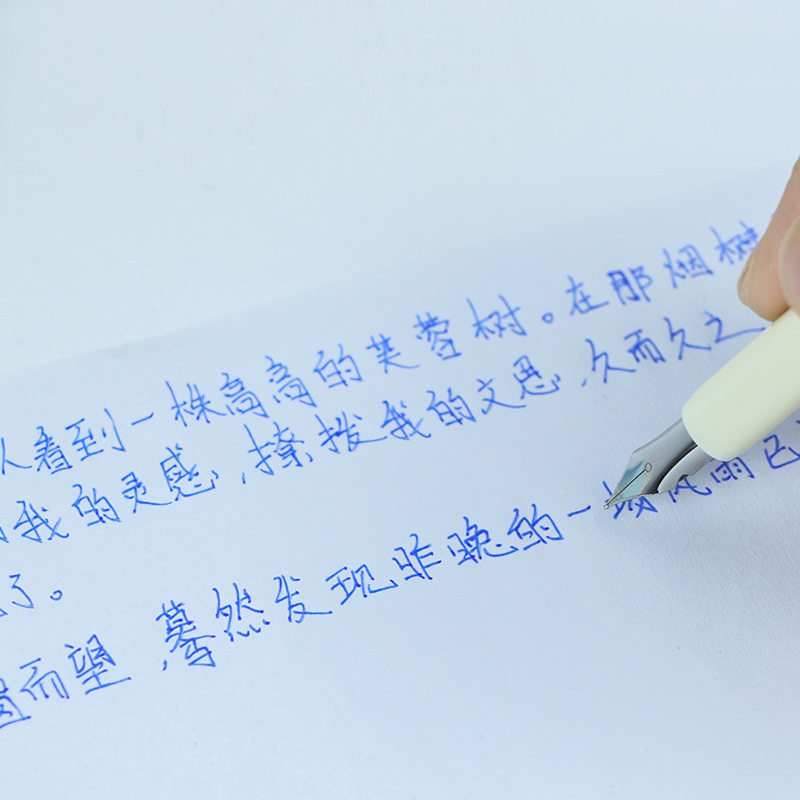 从看到一株高高的芙蓉树。在那烟树
我的灵感,撩拨我的文思,久而久之
了。
窗而望,蓦然发现昨晚的一场风雨已